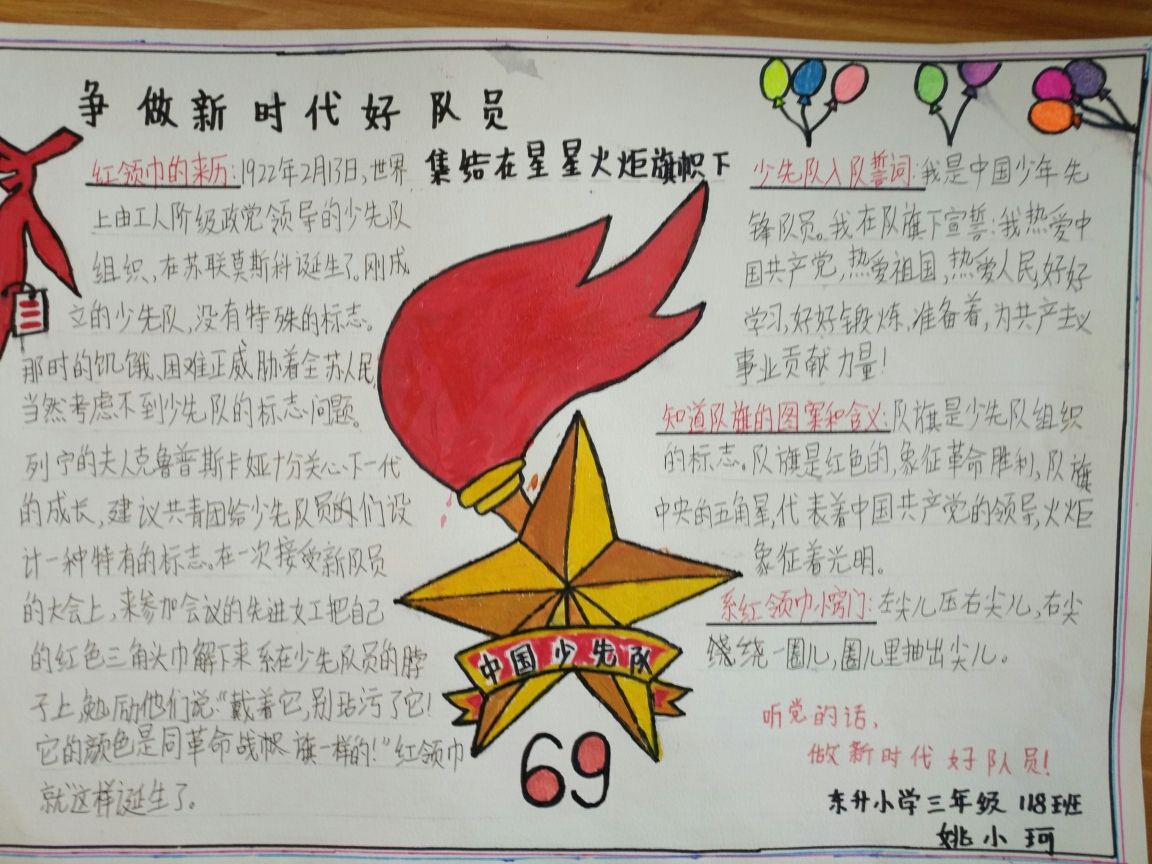 争做新时代好队员
集结在星星火炬旗帜下
红领巾的来历:1922年2月13日,世界
上由工人阶级政党领导的少先队
组织,在苏联莫斯科诞生了。刚成
立的少先队,没有特殊的标志。
那时的饥饿、困难正威胁着全苏人民,
当然考虑不到少先队的标志问题。
列宁的夫人克鲁普斯卡娅十分关心下一代
的成长,建议共青团给少先队员们设
计一种特有的标志。在一次接受新队员
的大会上,来参加会议的先进女工把自己
的红色三角头巾解下来系在少先队员的脖
子上,勉励他们说:“戴着它,别玷污了它!
它的颜色是同革命战帜旗一样的!”红领巾
就这样诞生了。
中国少先队
69
少先队入队誓词:我是中国少年先
锋队员。我在队旗下宣誓:我热爱中
国共产党,热爱祖国,热爱人民,好好
学习,好好锻炼,准备着,为共产主义
事业贡献力量!
知道队旗的图案和含义:队旗是少先队组织
的标志。队旗是红色的,象征革命胜利,队旗
中央的五角星,代表着中国共产党的领导,火炬
象征着光明。
系红领巾小窍门:左尖儿压右尖儿,右尖
绕绕一圈儿,圈儿里抽出尖儿。
听党的话,
做新时代好队员!
东升小学三年级 118班
姚小珂